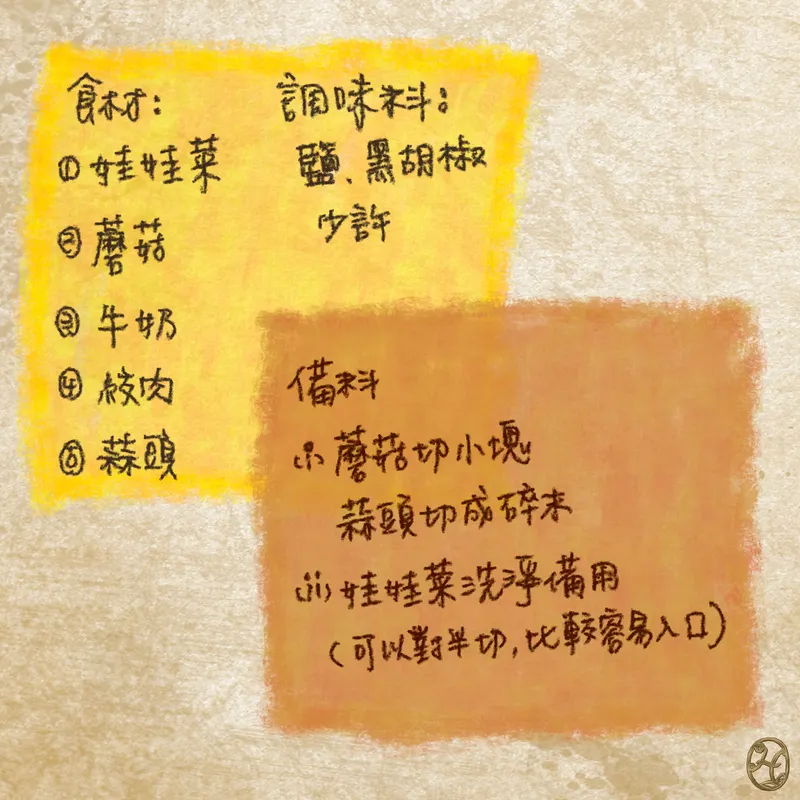 食材:
① 娃娃菜
② 蘑菇
③ 牛奶
④ 絞肉
⑤ 蒜頭
調味料:
鹽、黑胡椒
少許
備料
(i) 蘑菇切小塊
蒜頭切成碎末
(ii) 娃娃菜洗淨備用
(可以對半切,比較容易入口)